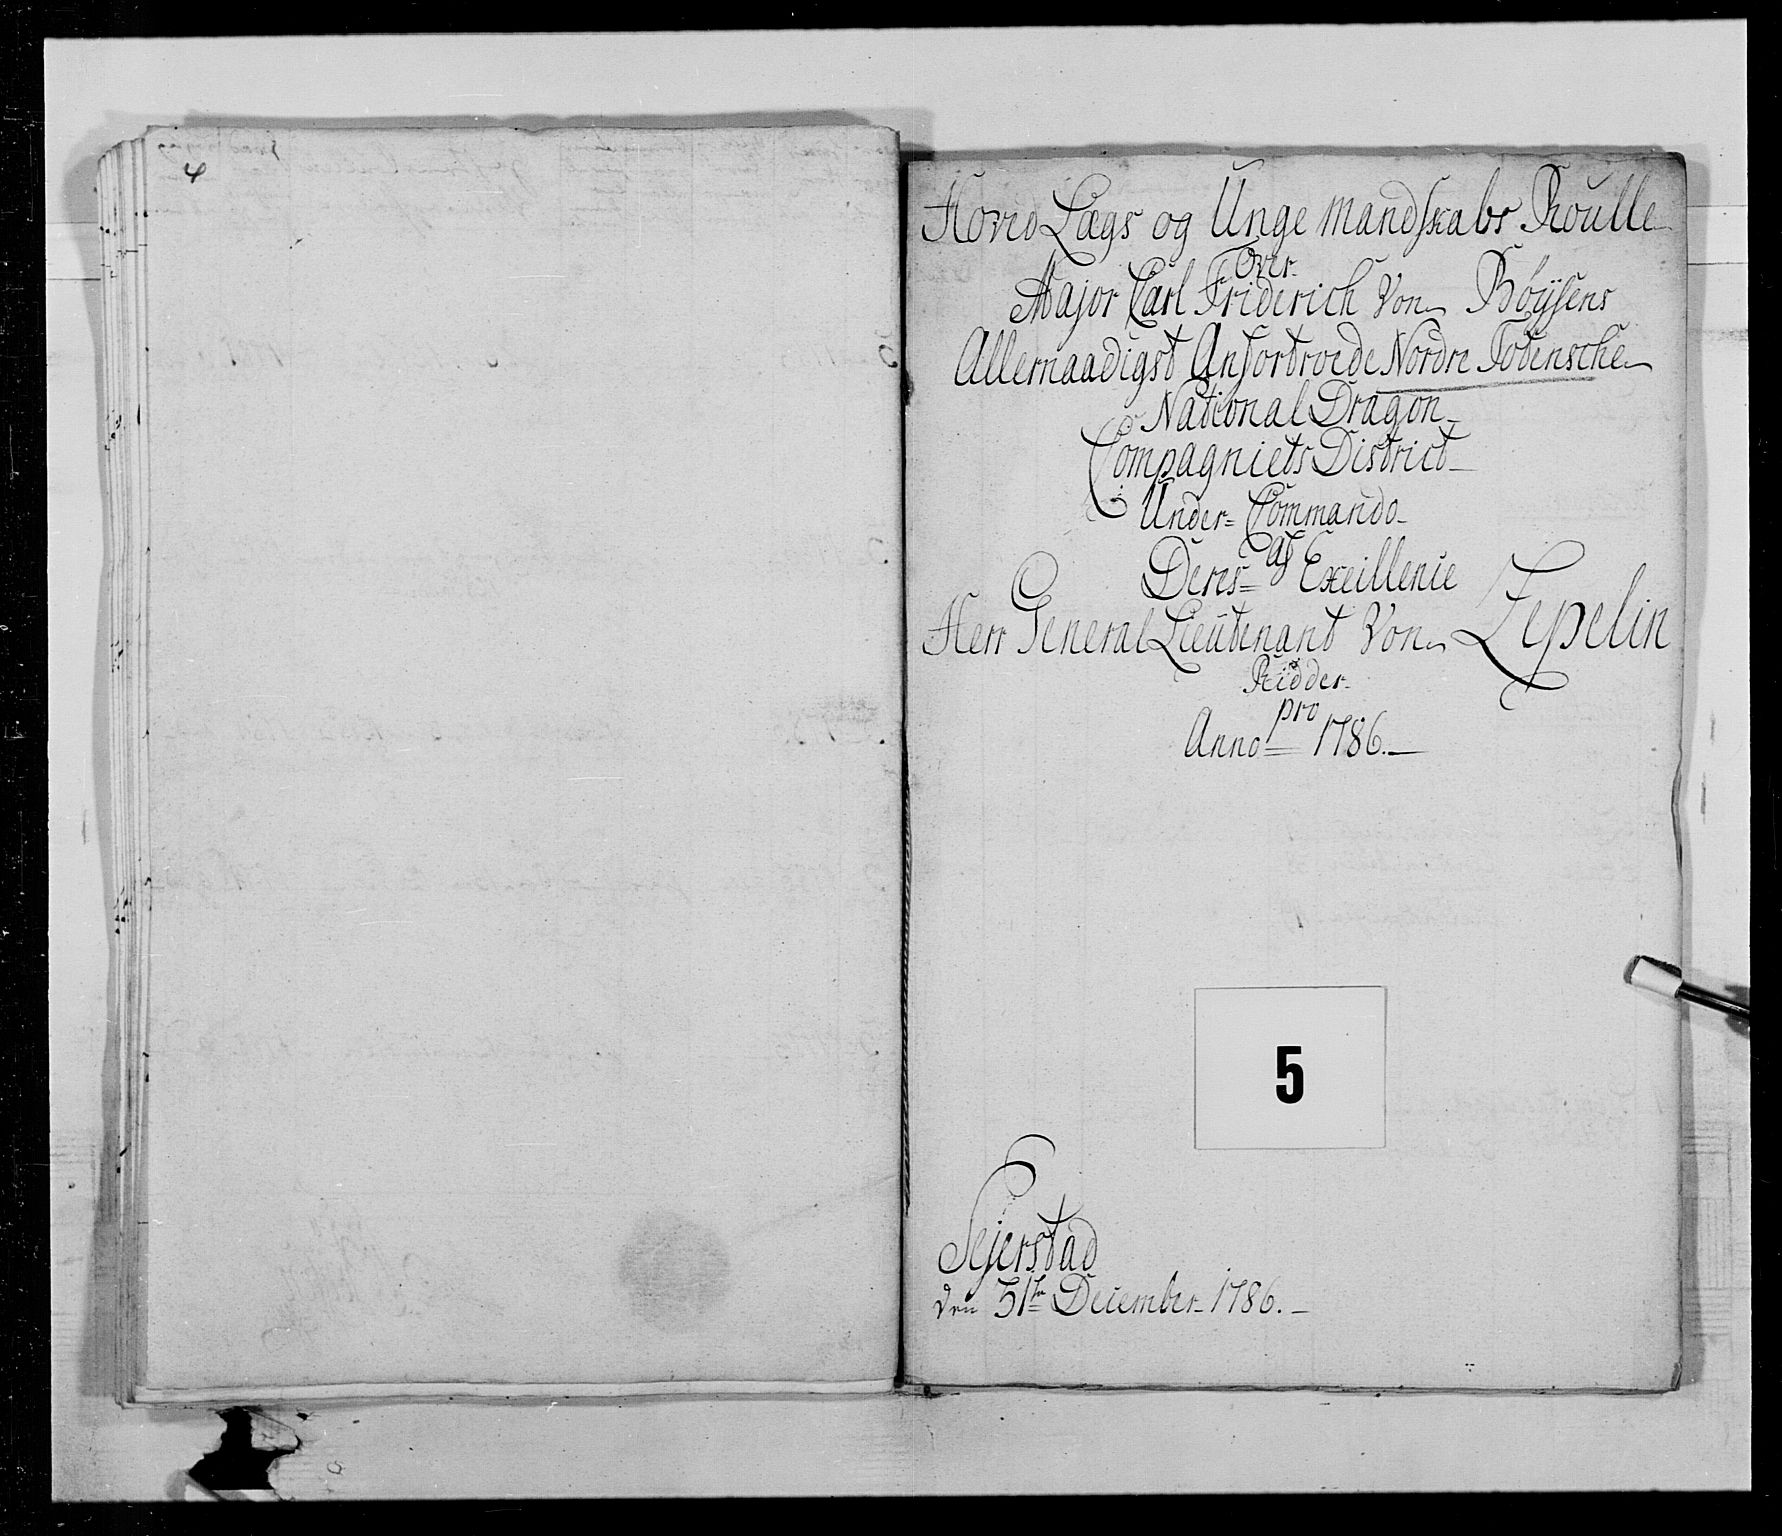 Hovid Lægs og Unge mandskabs Roulle
Over
Major Carl Friderich Von Böÿsens
Allernaadigst Anfortroede Nordre Todensche
National Dragon
Compagniets District
Under= Commando
af
Deres= Exeillenie
Herr General Lieutenant Von Zepelin
Ridder
pro
Anno= 1786.
5
Sejerstad
den 31te December 1786.